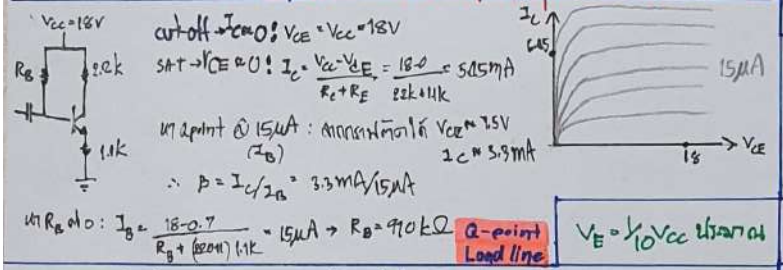 Vcc = 18V
R_B
2.2k
1.1k
cut-off → Ic ≈ 0 : V_CE = Vcc = 18V
SAT → V_CE ≈ 0 : I_C = (Vcc - V_CE) / (R_C + R_E) = (18-0) / (2.2k + 1.1k) = 5.45mA
หา Qpoint @ 15μA : จากกราฟตัดได้ V_CE ≈ 7.5V
(I_B)
I_C ≈ 3.3mA
∴ β = I_C/I_B = 3.3mA/15μA
หา R_B ต่อ : I_B = (18-0.7) / (R_B + (220+1) 1.1k) = 15μA → R_B = 910kΩ
Q-point
Load line
I_C
5.45
15μA
18
V_CE
V_E = 1/10 Vcc ประมาณ